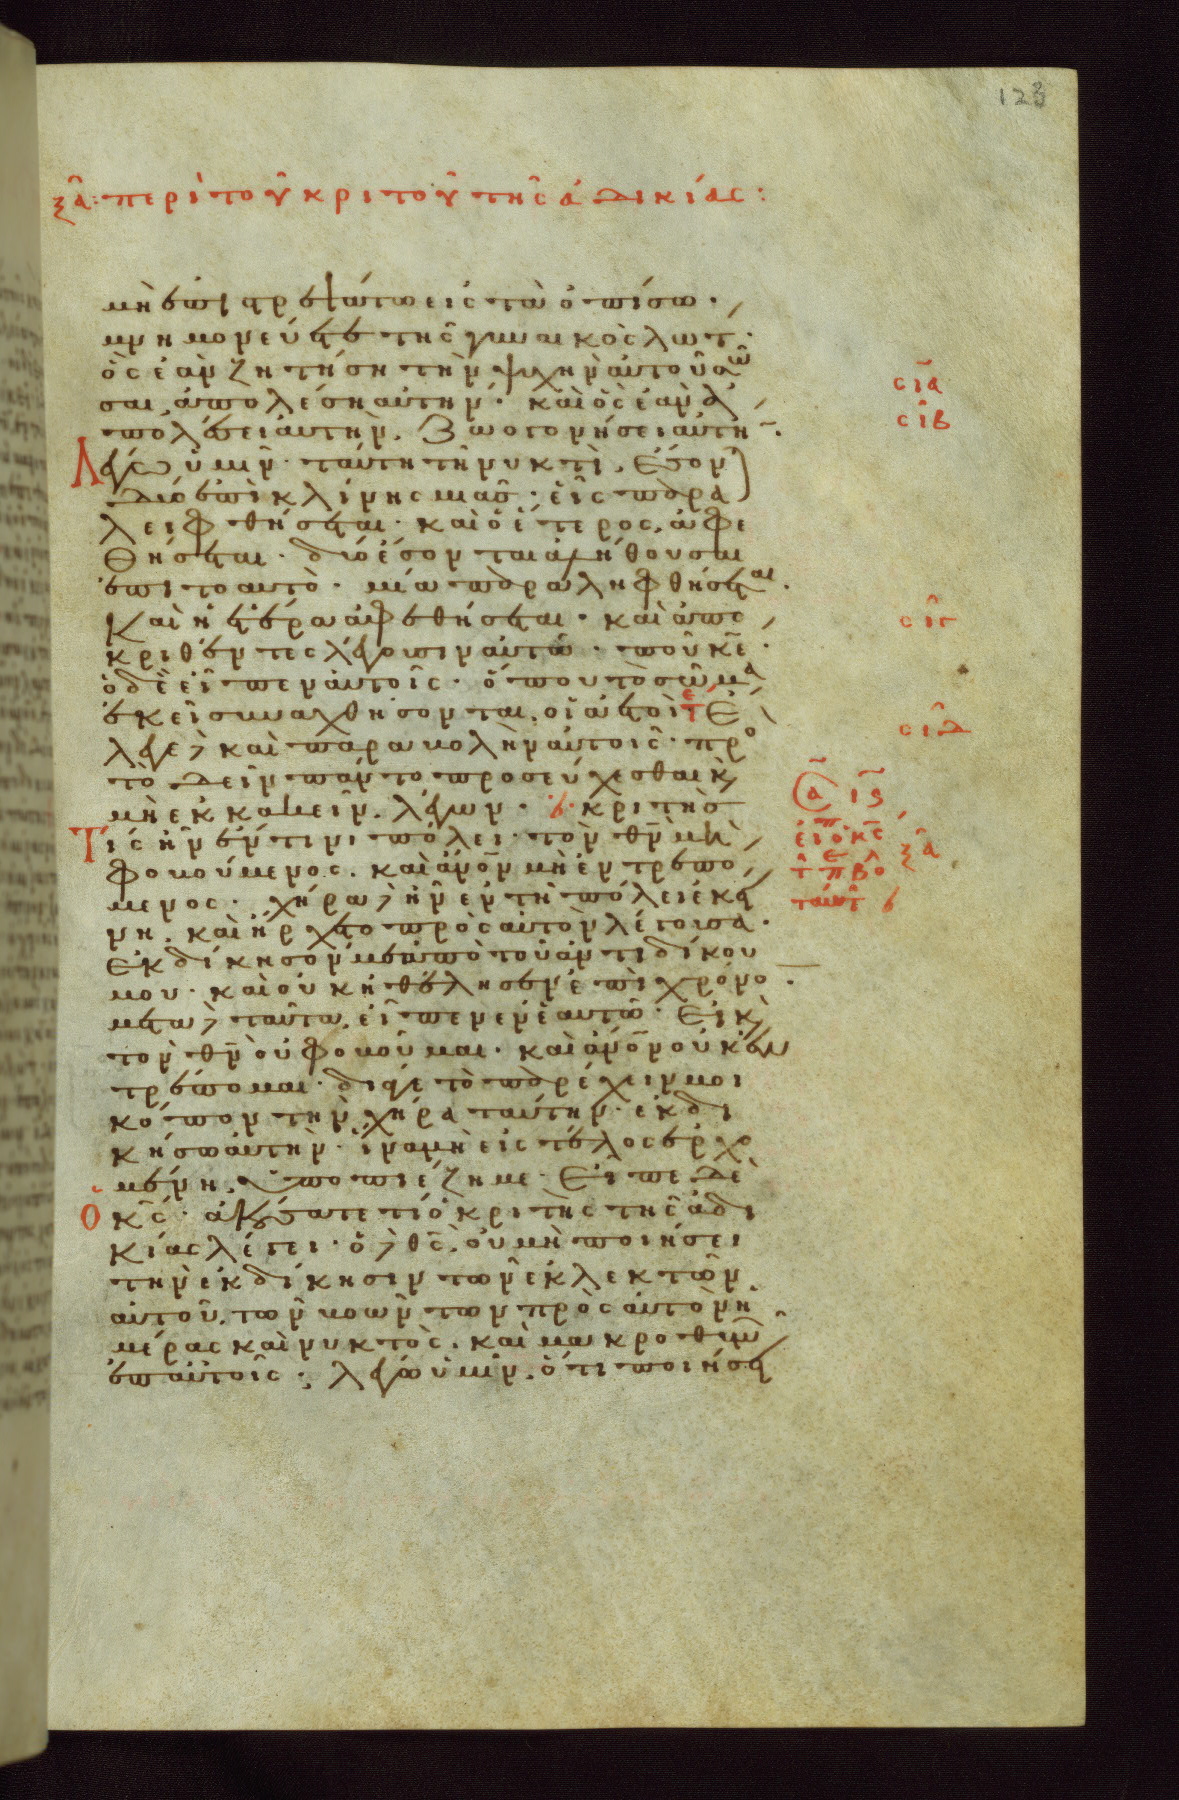 123
ξα: περὶ τοῦ κριτοῦ τῆς ἀδικίας:
μὴ ἐπιστρεψάτω εἰς τὰ ὀπίσω.
μνημονεύετε τῆς γυναικὸς λωτ.
ὃς ἐὰν ζητήση τὴν ψυχὴν αὐτοῦ σῶ
σαι, ἀπολέση αὐτήν· καὶ ὃς ἐὰν ἀ
πολέσει αὐτὴν, ζωογονήσει αὐτή.
Λέγω ὑμῖν· ταύτη τῆ νυκτὶ, ἔσον
δύο ἐπὶ κλίνης μιᾶς· εἷς παρα
λειφθήσεται· καὶ ὁ ἕτερος, ἀφε
θήσεται· δύο ἔσονται ἀλήθουσαι
ἐπιτοαυτὸ· μία παραληφθήσεται.
καὶ ἡ ἑτέρα ἀφεθήσεται· καὶ ἀπο
κριθέντες λέγουσιν αὐτῶ· ποῦ κε.
ὁ δὲ εἶπεν αὐτοῖς· ὅπου τὸ σῶμα
ἐκεῖ συναχθήσονται, οἱ ἀετοί τε Ἔ
λεγε δὲ καὶ παραβολὴν αὐτοῖς· προ
τὸ δεῖν πάντοτε προσεύχεσθαι κ
μὴ ἐκκακεῖν, λέγων· κριτὴς
Τίς ἦν ἔν τινι πόλει· τὸν θν μὴ
φοβούμενος, καὶ ἀνον μὴ ἐντρεπό
μενος· χήρα δὲ ἦν ἐν τῆ πόλει ἐκεί
νη, καὶ ἤρχετο πρὸς αὐτὸν λέγουσα.
ἐκδίκησόν με ἀπὸ τοῦ ἀντιδίκου
μου· καὶ οὐκ ἠθέλησεν ἐπὶ χρόνο.
μετὰ δὲ ταῦτα, εἶπεν ἐν ἑαυτῶ· Εἰ κ
τὸν θν οὐ φοβοῦμαι· καὶ ἀνον οὐκ ἐν
τρέπομαι· διά γε τὸ παρέχειν μοι
κόπον τὴν χήρα ταύτην· ἐκδι
κήσω αὐτὴν· ἵνα μὴ εἰς τέλος ἐρχο
μένη, ὑποπιέζη με· Εἶπε δὲ
Ὁ κς· ἀκούσατε τί ὁ κριτὴς τῆς ἀδι
κίας λέγει· ὁ δὲ θς, οὐ μὴ ποιήσει
τὴν ἐκδίκησιν τῶν ἐκλεκτῶν
αὐτοῦ, τῶν βοών των πρὸς αὐτὸν ἡ
μέρας καὶ νυκτὸς, καὶ μακροθυμῶ
ἐπ αὐτοῖς· λέγω ὑμῖν, ὅτι ποιήσει
σια
σιβ
σιγ
σιδ
α ις
ξα